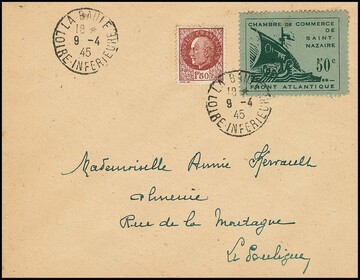 LA BAULE
18 *
9 - 4
45
LOIRE-INFERIEURE
1F50
CHAMBRE DE COMMERCE
DE
SAINT-
NAZAIRE
50c
FRONT ATLANTIQUE
LA BAULE
18 *
9 - 4
45
LOIRE-INFERIEURE
Mademoiselle Annie
Rue de la
Le Pouliguen